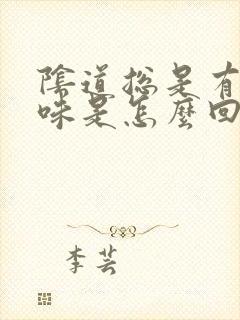 陰道總是有
味是怎麼回
李芸